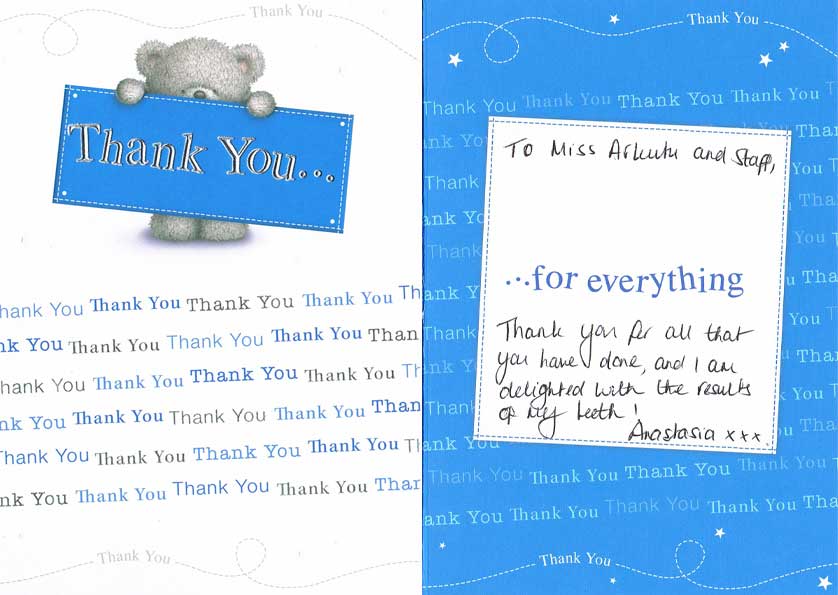 Thank You
Thank You...
hank You Thank You Thank You Thank You Th
nk You Thank You Thank You Thank You Than
hank You Thank You Thank You Thank You Th
nk You Thank You Thank You Thank You Than
Thank You Thank You Thank You Thank You Th
nk You Thank You Thank You Thank You Than
Thank You
Thank You
Thank You Thank You Thank You Thank You T
To Miss and Staff,
...for everything
Thank you for all that
you have done, and I am
delighted with the results
of my teeth!
Anastasia xxx.
ank You Thank You Thank You Thank You
Thank You Thank You Thank You Thank You
Thank You